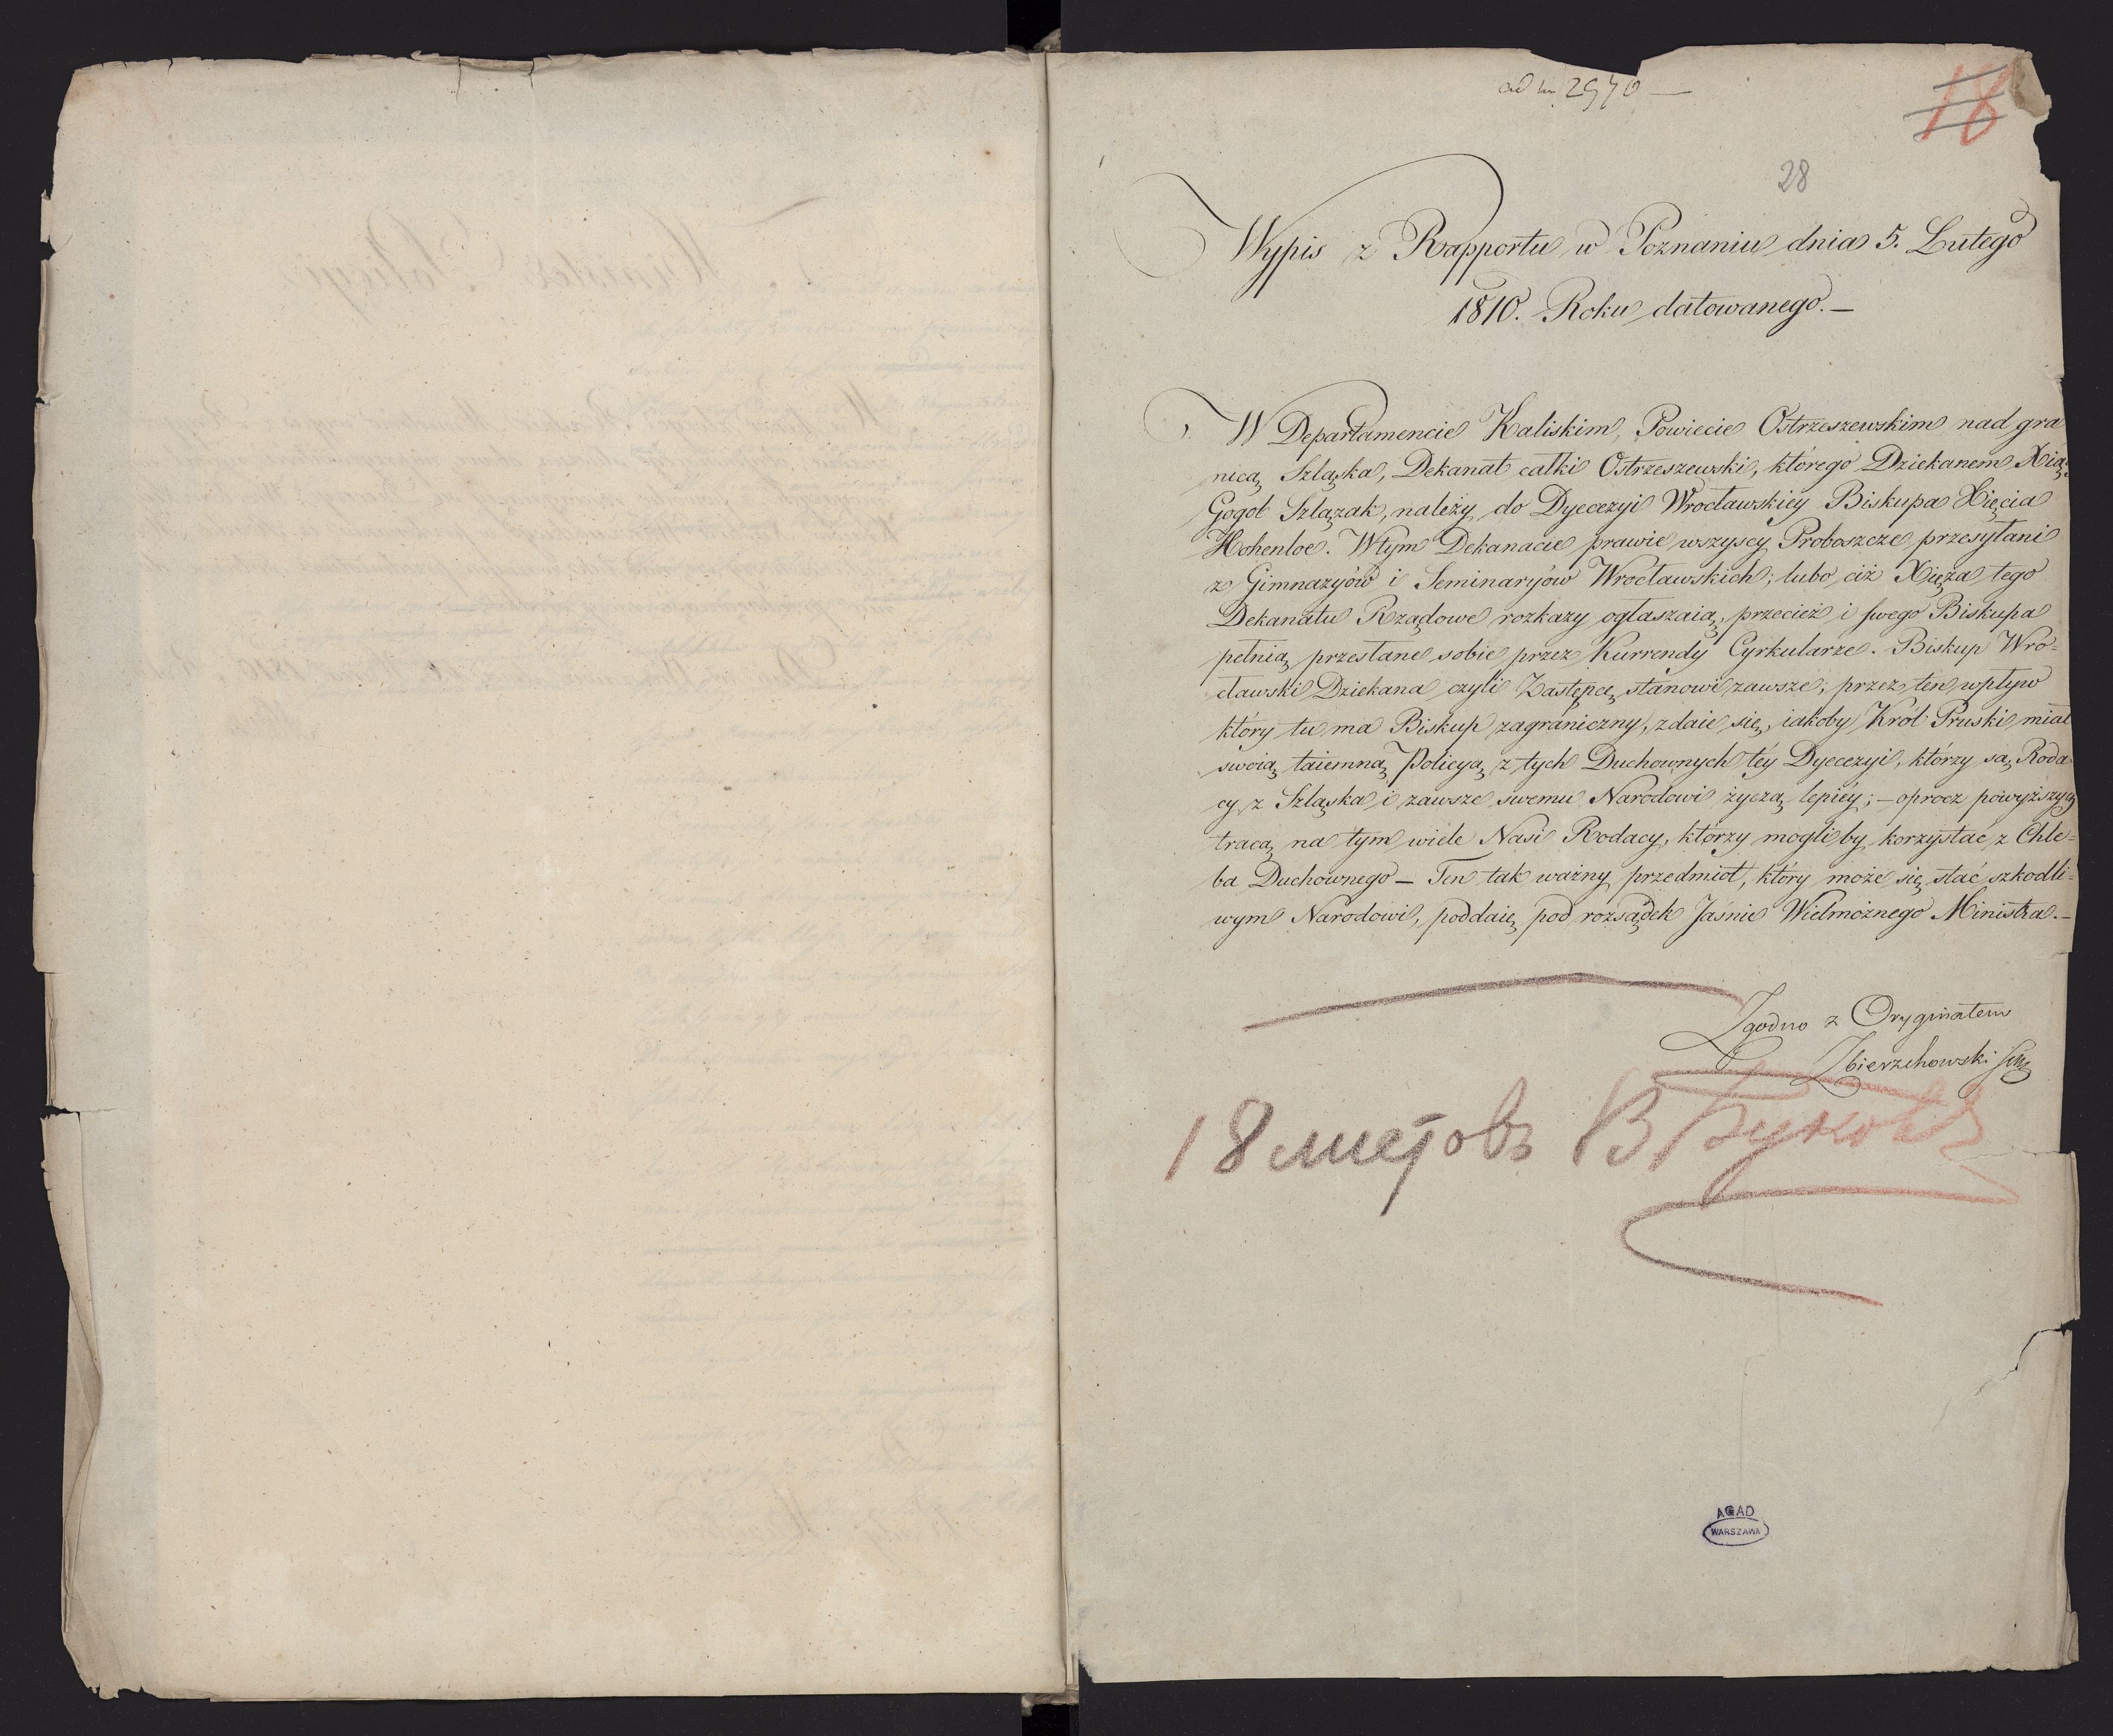 ad nr 2970 —
18
28
Wypis z Rapportu w Poznaniu dnia 5. Lutego
1810. Roku datowanego. —
W Departamencie Kaliskim, Powiecie Ostrzeszewskim nad gra
nicą Szląska, Dekanat całki Ostrzeszewski, którego Dziekanem Xiąz
Gogol Szlązak, należy do Dyecezyi Wrocławskiey Biskupa Xięcia
Hohenloe. Wtym Dekanacie prawie wszyscy Proboszcze przesyłani
z Gimnazyów i Seminaryów Wrocławskich; lubo ciż Xięża tego
Dekanatu Rządowe rozkazy ogłaszaią, przecież i swego Biskupa
pełnią przesłane sobie przez Kurrendy Cyrkularze. Biskup Wro=
cławski Dziekana czyli Zastępcę stanowi zawsze; przez ten wpływ
który tu ma Biskup zagraniczny, zdaie się, iakoby Król Pruski miał
swoią taiemną Policyą z tych Duchownych téy Dyecezyi, którzy są Roda
cy z Szląska i zawsze swemu Narodowi życzą lepiéy; — oprocz powyższych
tracą na tym wiele Nasi Rodacy, którzy mogliby korzystać z Chle=
ba Duchownego — Ten tak ważny przedmiot, który może się stać szkodli=
wym Narodowi, poddaię pod rozsądek Jaśnie Wielmożnego Ministra. —
Zgodno z Oryginałem
Zbierzchowski
18 листовъ В Буковъ
AGAD
WARSZAWA